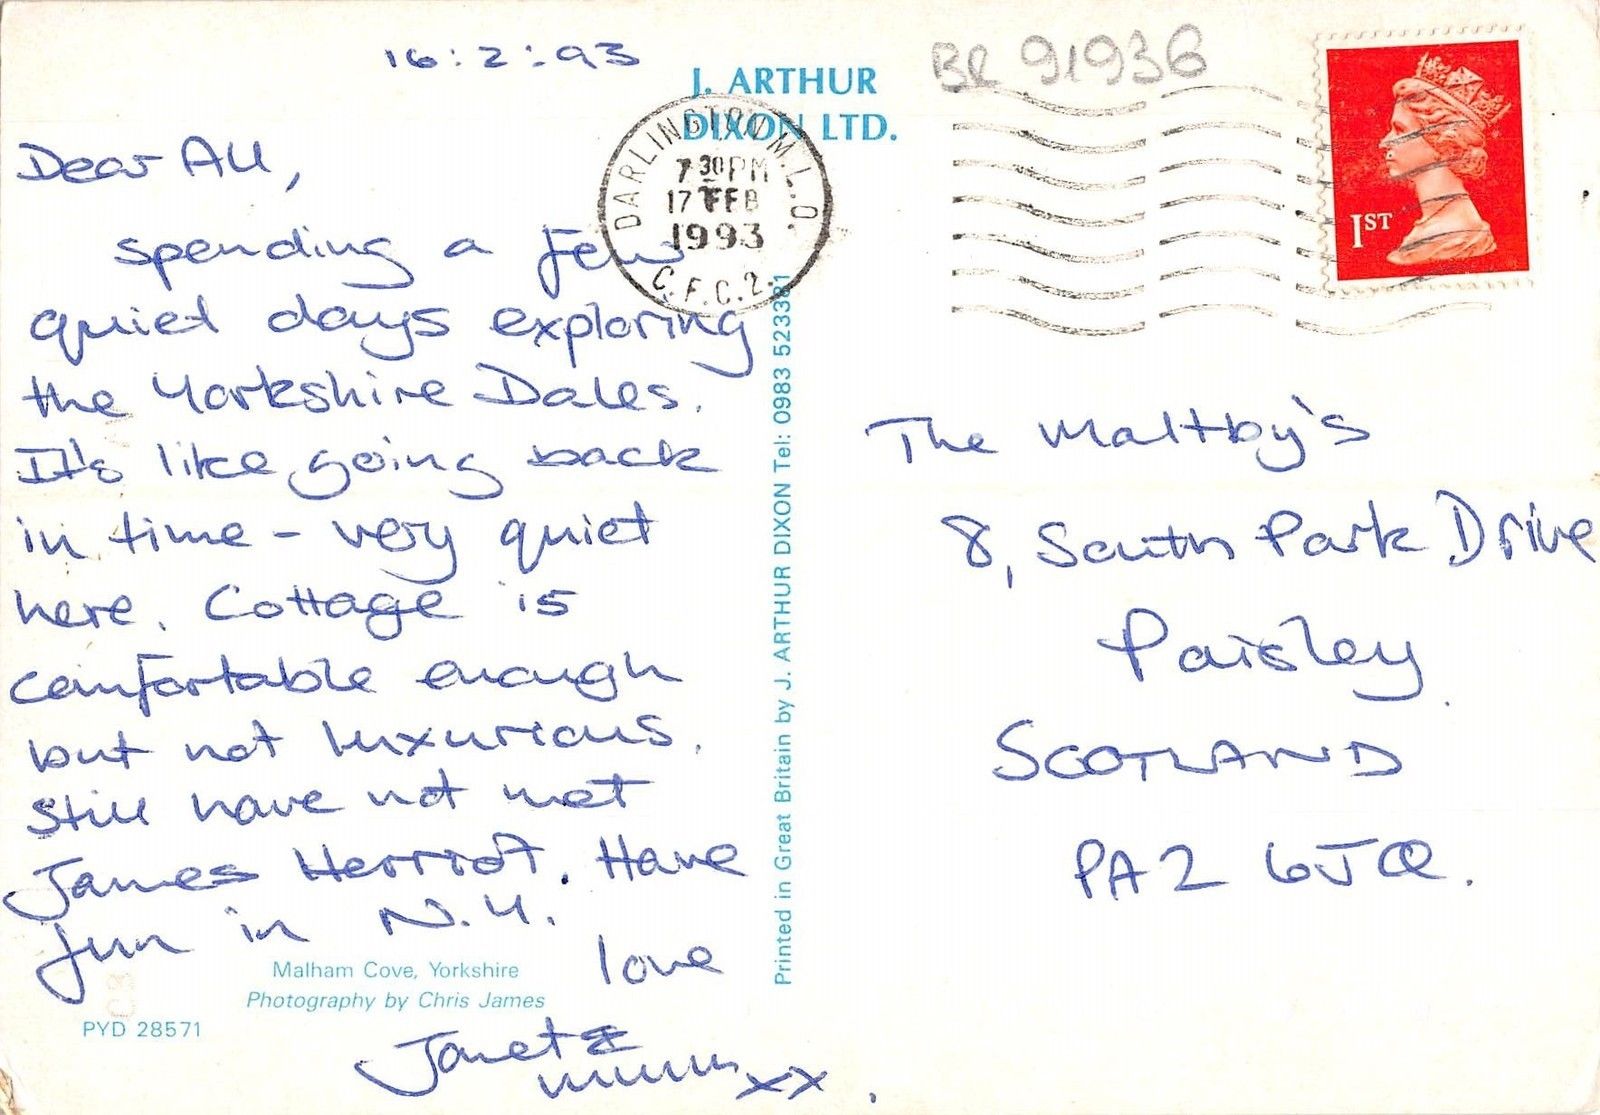 16:2:93
Dear All,
spending a few
quiet days exploring
the Yorkshire Dales.
It's like going back
in time - very quiet
here. Cottage is
comfortable enough
but not luxurious.
Still have not met
James Herriot. Have
fun in N.Y.
love
Janet &
xx.
Malham Cove, Yorkshire
Photography by Chris James
PYD 28571
J. ARTHUR
DIXON LTD.
DARLINGTON M.L.O.
7 30 PM
17 FEB
1993
C.F.C.2.
Printed in Great Britain by J. ARTHUR DIXON Tel: 0983 523381
BR 91936
1ST
The Maltby's
8, South Park Drive
Paisley
SCOTLAND
PA2 6JQ.